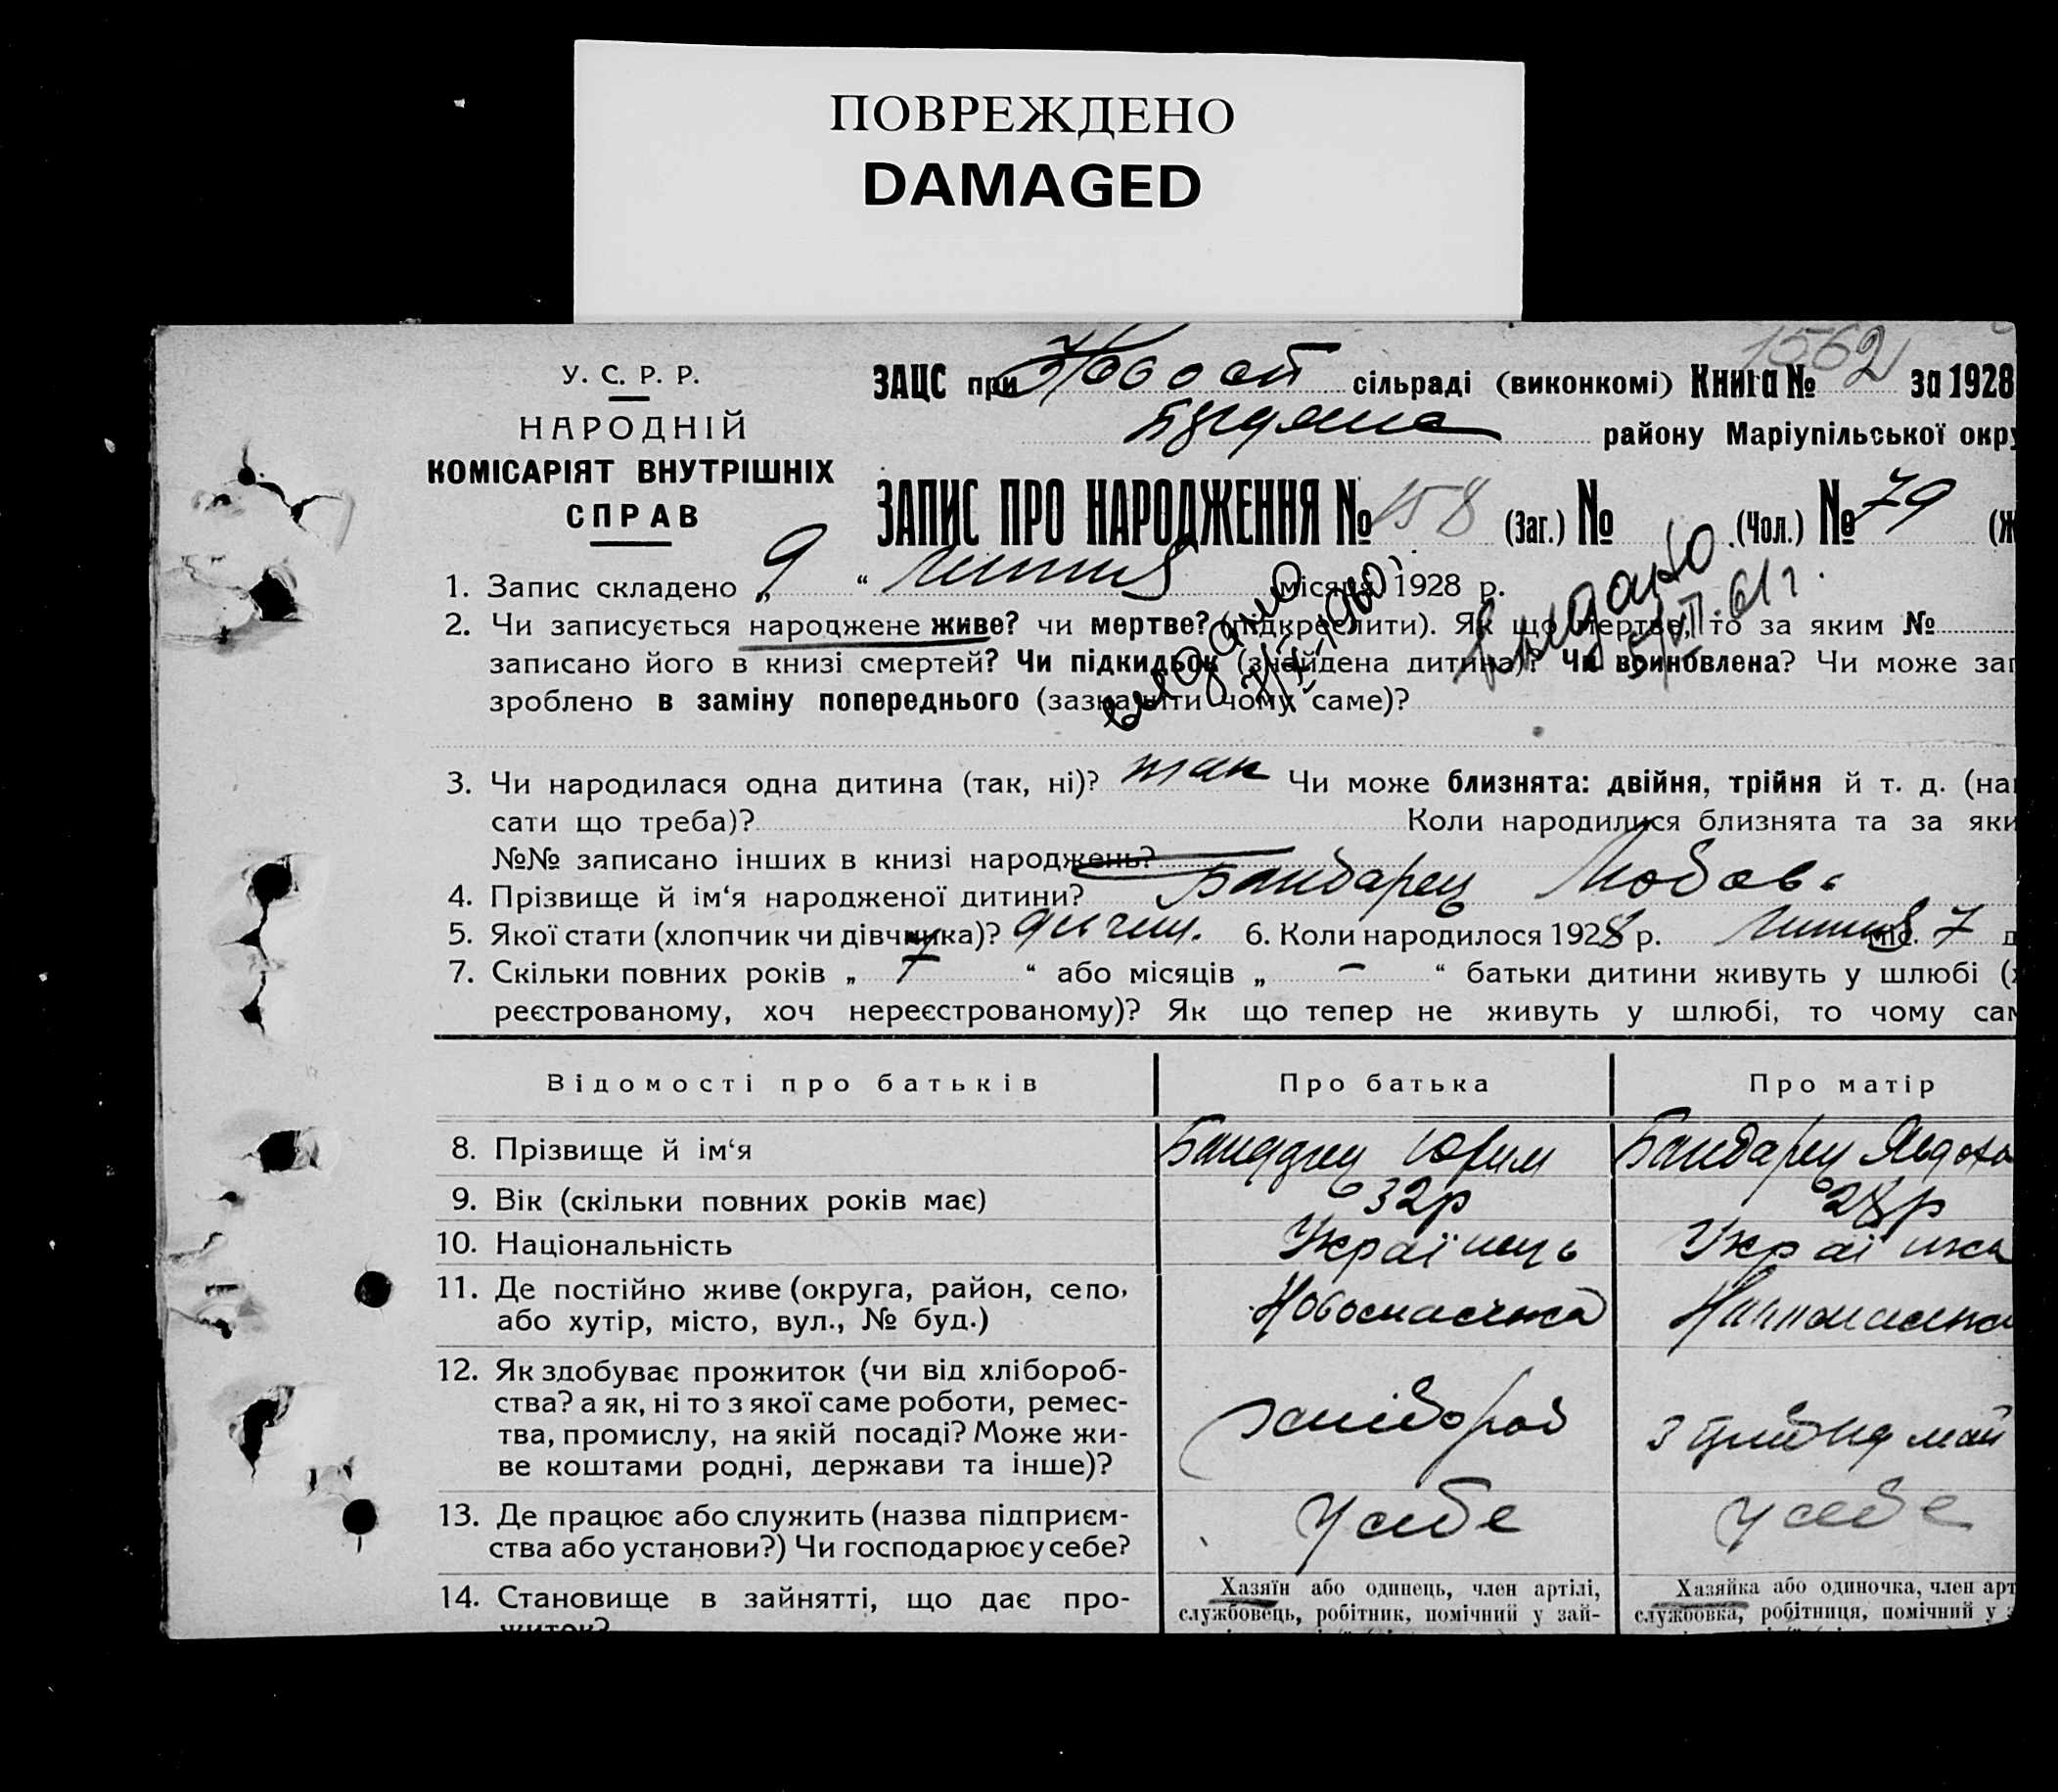 ПОВРЕЖДЕНО
DAMAGED
У. С. Р. Р.
НАРОДНІЙ
КОМІСАРІЯТ ВНУТРІШНІХ
СПРАВ
ЗАЦС при сільраді (виконкомі) Книга № 2 за 1928
1562
району Маріупільської окру
ЗАПИС ПРО НАРОДЖЕННЯ № 158 (Заг.) № (Чол.) № 79 (Ж
1. Запис складено „ 9 “ липня місяця 1928 р.
2. Чи записується народжене живе? чи мертве? (підкреслити). Як що мертве, то за яким №
записано його в книзі смертей? Чи підкидьок (знайдена дитина)? Чи вриновлена? Чи може заг
зроблено в заміну попереднього (зазначити чому саме)?
выдано
выдано
5/VII.61 г.
3. Чи народилася одна дитина (так, ні)? так Чи може близнята: двійня, трійня й т. д. (на
сати що треба)? Коли народилися близнята та за яки
№№ записано інших в книзі народжень?
4. Прізвище й ім‘я народженої дитини? Бандарец Любовь
5. Якої стати (хлопчик чи дівчинка)? дівчин. 6. Коли народилося 1928 р. липня міс. 7 д
7. Скільки повних років „ 7 “ або місяців „ – “ батьки дитини живуть у шлюбі (
реєстрованому, хоч нереєстрованому)? Як що тепер не живуть у шлюбі, то чому сам
Відомості про батьків Про батька Про матір
8. Прізвище й ім‘я Бандарец Юхим Бандарец Явдоха
9. Вік (скільки повних років має) 32р 28р
10. Національність Українець Українка
11. Де постійно живе (округа, район, село,
або хутір, місто, вул., № буд.) Новоспаська
12. Як здобуває прожиток (чи від хлібороб-
ства? а як, ні то з якої саме роботи, ремес-
тва, промислу, на якій посаді? Може жи-
ве коштами родні, держави та інше)? хлібороб
13. Де працює або служить (назва підприєм-
ства або установи?) Чи господарює у себе? У себе у себе
14. Становище в зайнятті, що дає про-
житок?
Хазяїн або одинець, член артілі,
службовець, робітник, помічний у зай-
Хазяйка або одиночка, член арт
службовка, робітниця, помічний у з